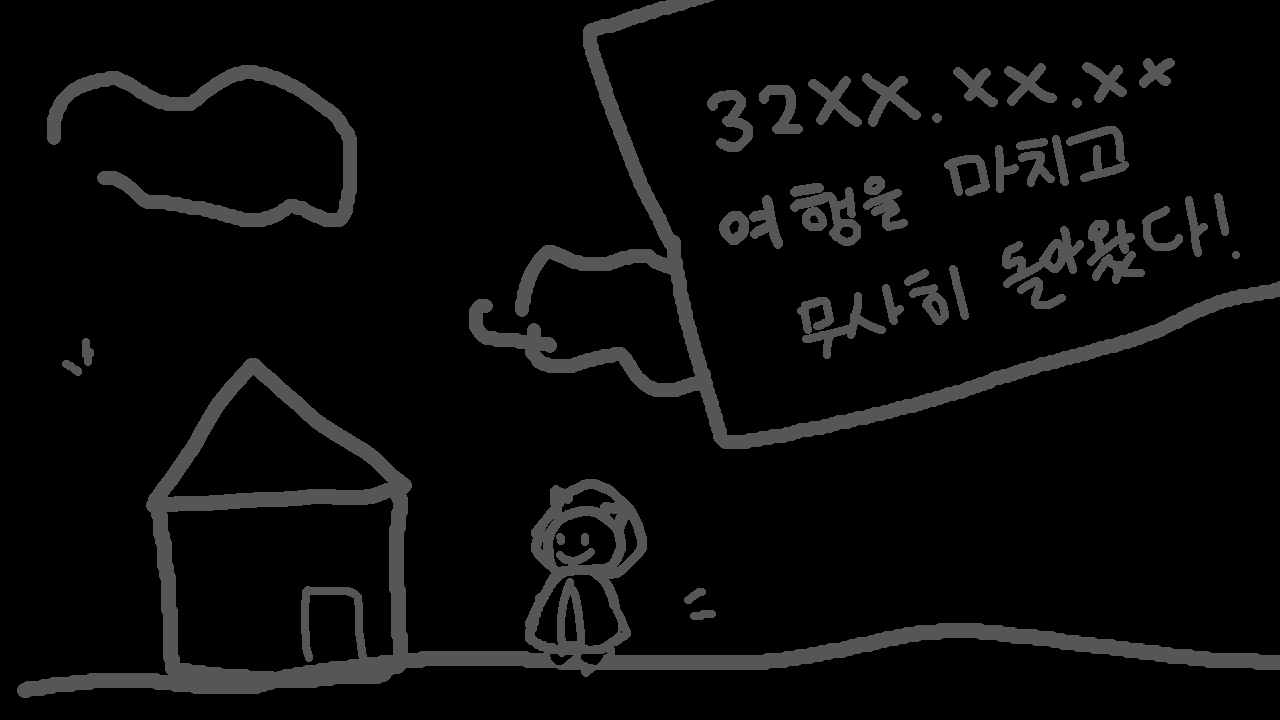 32XX.XX.XX
여행을 마치고
무사히 돌아왔다!